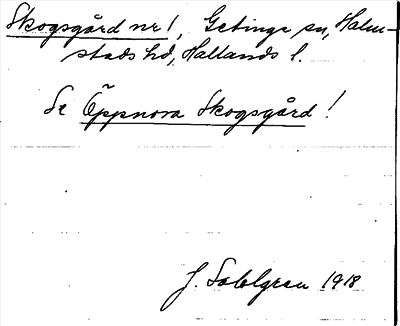 Skogsgård nr 1, Getinge sn, Halm-
stads hd, Hallands l.
Se Öppnora Skogsgård!
J. Sahlgren 1918